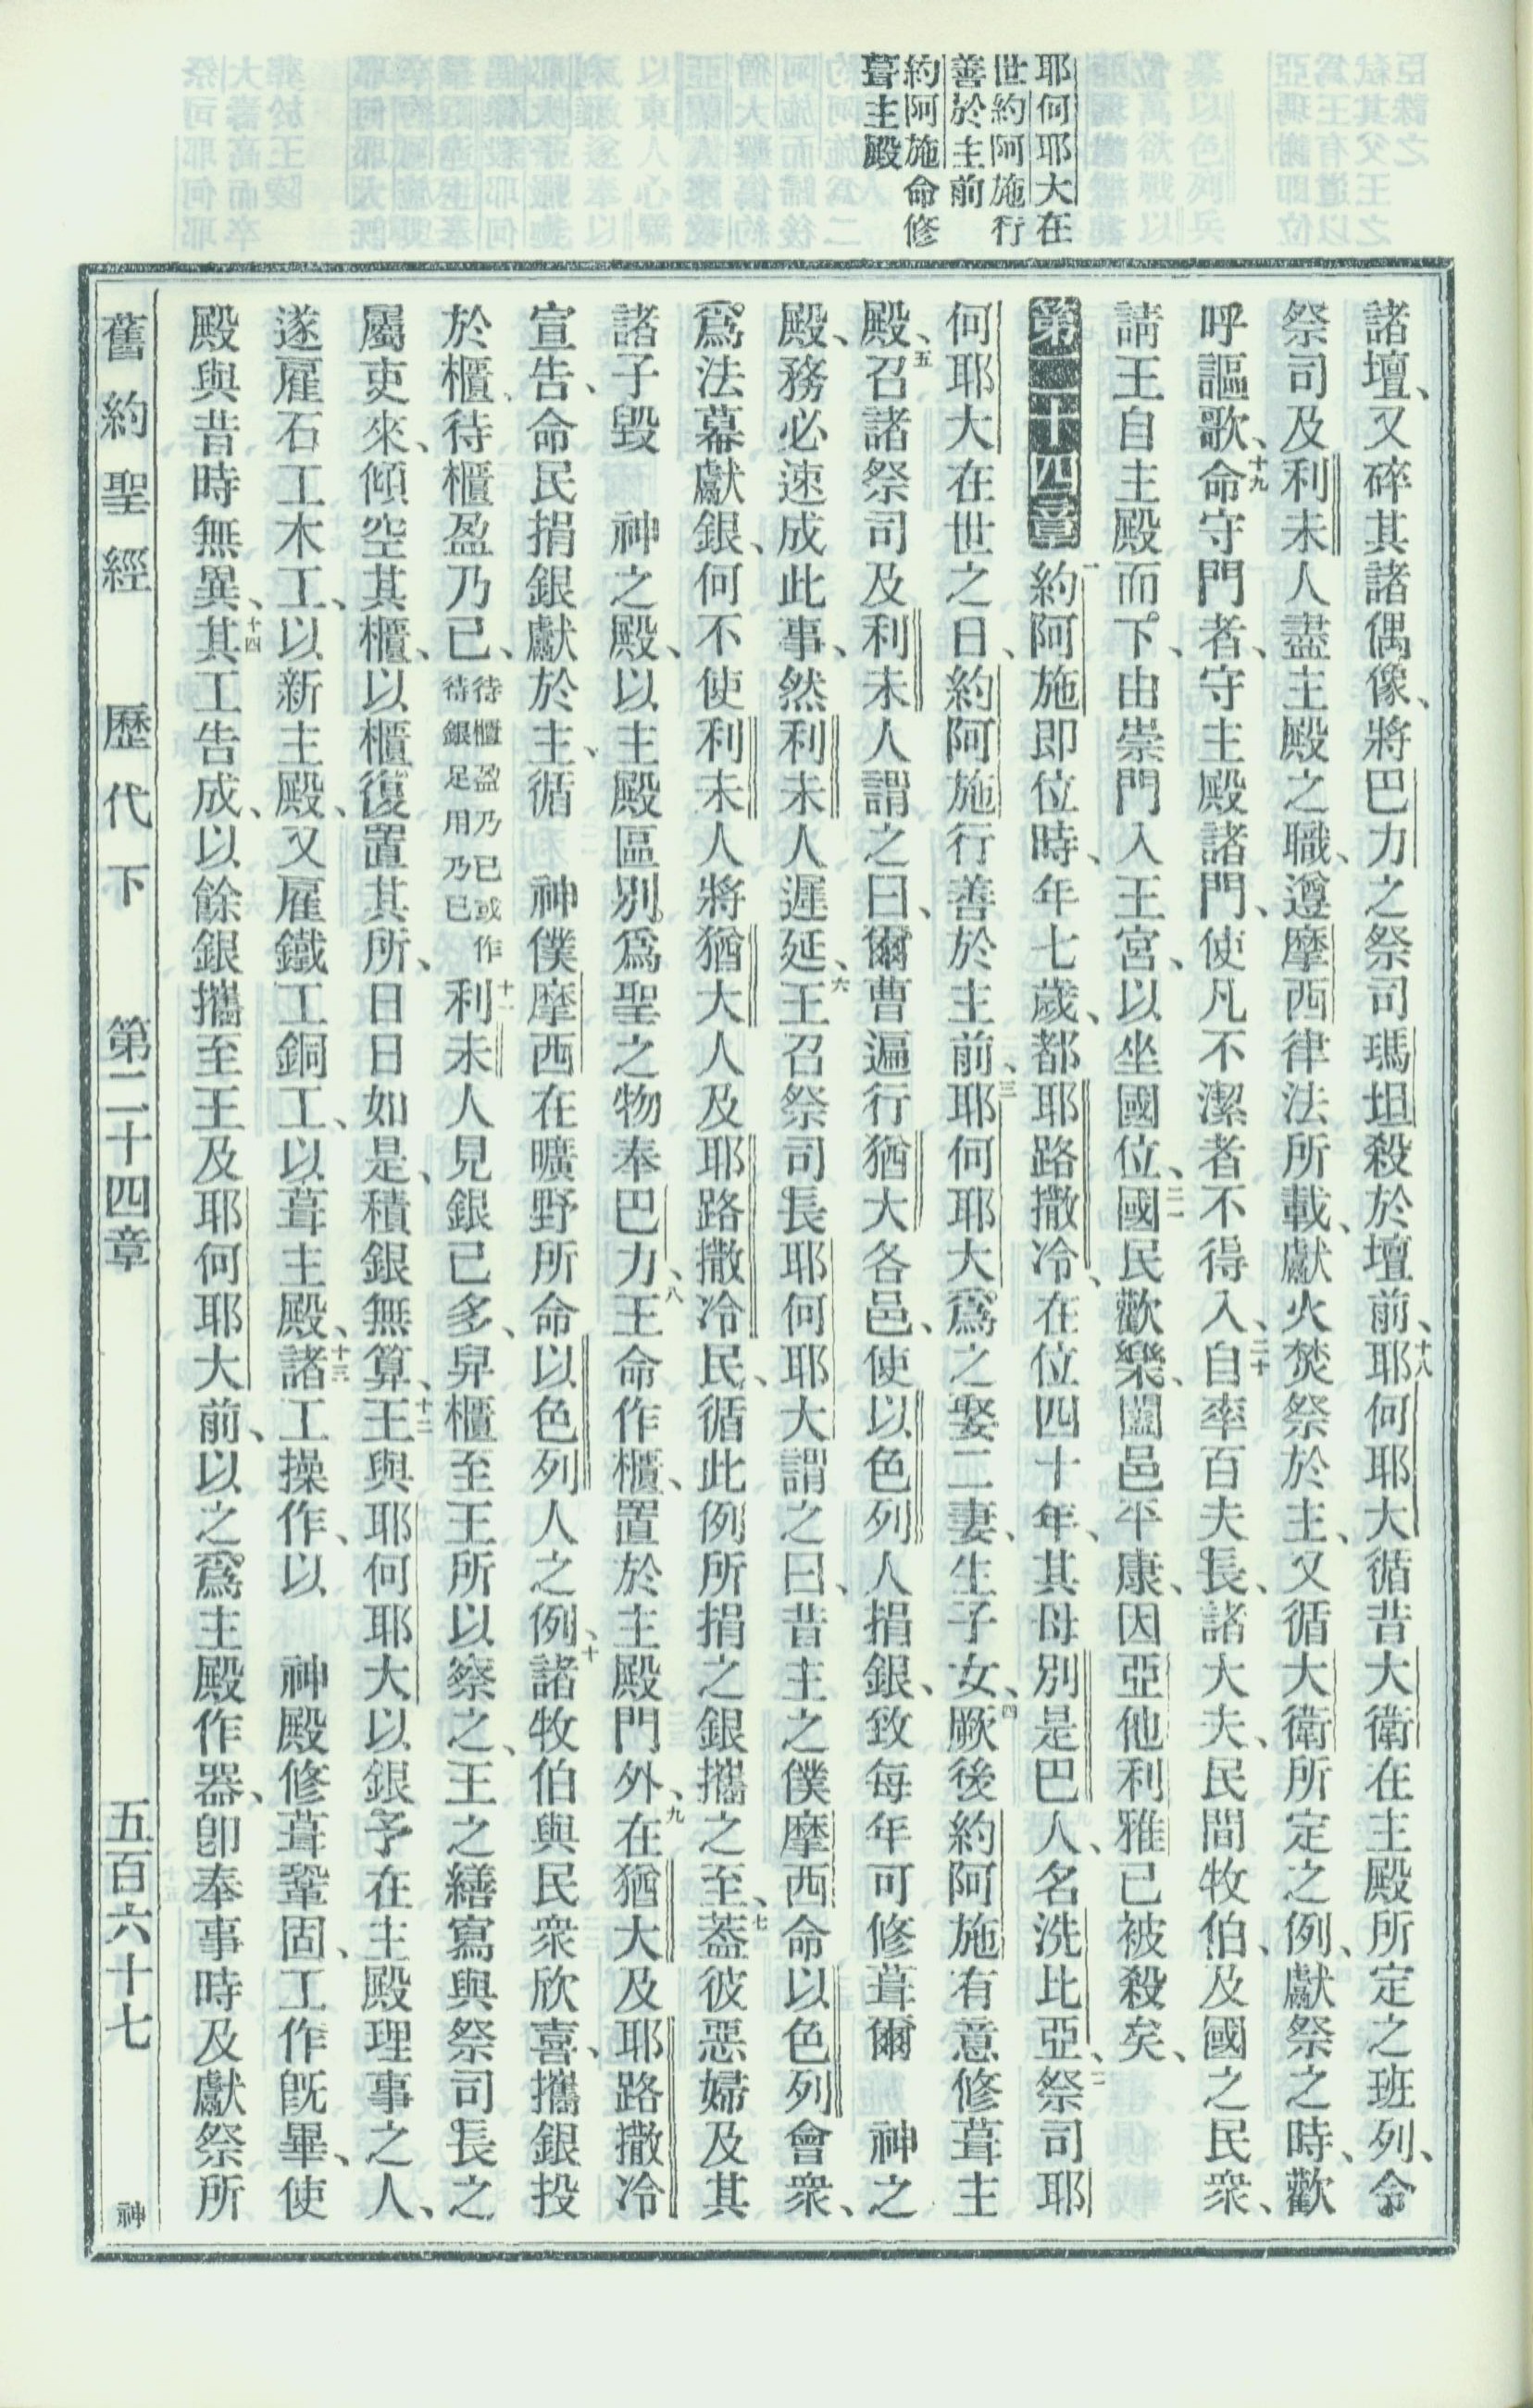 耶何耶大在
世約阿施行
善於主前
約阿施命修
葺主殿
諸壇、又碎其諸偶像、將巴力之祭司瑪坦殺於壇前、十八耶何耶大循昔大衛在主殿所定之班列、令
祭司及利未人盡主殿之職、遵摩西律法所載、獻火焚祭於主、又循大衛所定之例、獻祭之時、歡
呼謳歌、十九命守門者、守主殿諸門、使凡不潔者不得入、二十自率百夫長、諸大夫、民間牧伯、及國之民衆、
請王自主殿而下、由崇門入王宮、以坐國位、二一國民歡樂、闔邑平康、因亞他利雅已被殺矣、
第二十四章 一約阿施即位時、年七歲、都耶路撒冷、在位四十年、其母別是巴人、名洗比亞、二祭司耶
何耶大在世之日、約阿施行善於主前、三耶何耶大爲之娶二妻、生子女、四厥後約阿施有意修葺主
殿、五召諸祭司及利未人謂之曰、爾曹遍行猶大各邑、使以色列人捐銀、致每年可修葺爾 神之
殿、務必速成此事、然利未人遲延、六王召祭司長耶何耶大謂之曰、昔主之僕摩西命以色列會衆、
爲法幕獻銀、何不使利未人將猶大人及耶路撒冷民、循此例所捐之銀攜之至、七蓋彼惡婦及其
諸子毀 神之殿、以主殿區別爲聖之物奉巴力、八王命作櫃、置於主殿門外、九在猶大及耶路撒冷
宣告、命民捐銀獻於主、循 神僕摩西在曠野所命以色列人之例、十諸牧伯與民衆欣喜、攜銀投
於櫃、待櫃盈乃已、待櫃盈乃已或作待銀足用乃已十一利未人見銀已多、舁櫃至王所以察之、王之繕寫與祭司長之
屬吏來、傾空其櫃、以櫃復置其所、日日如是、積銀無算、十二王與耶何耶大以銀予在主殿理事之人、
遂雇石工木工、以新主殿、又雇鐵工銅工、以葺主殿、十三諸工操作、以 神殿修葺鞏固、工作旣畢、使
殿與昔時無異、十四其工告成、以餘銀攜至王及耶何耶大前、以之爲主殿作器、卽奉事時及獻祭所
舊約聖經 歷代下 第二十四章 五百六十七 神